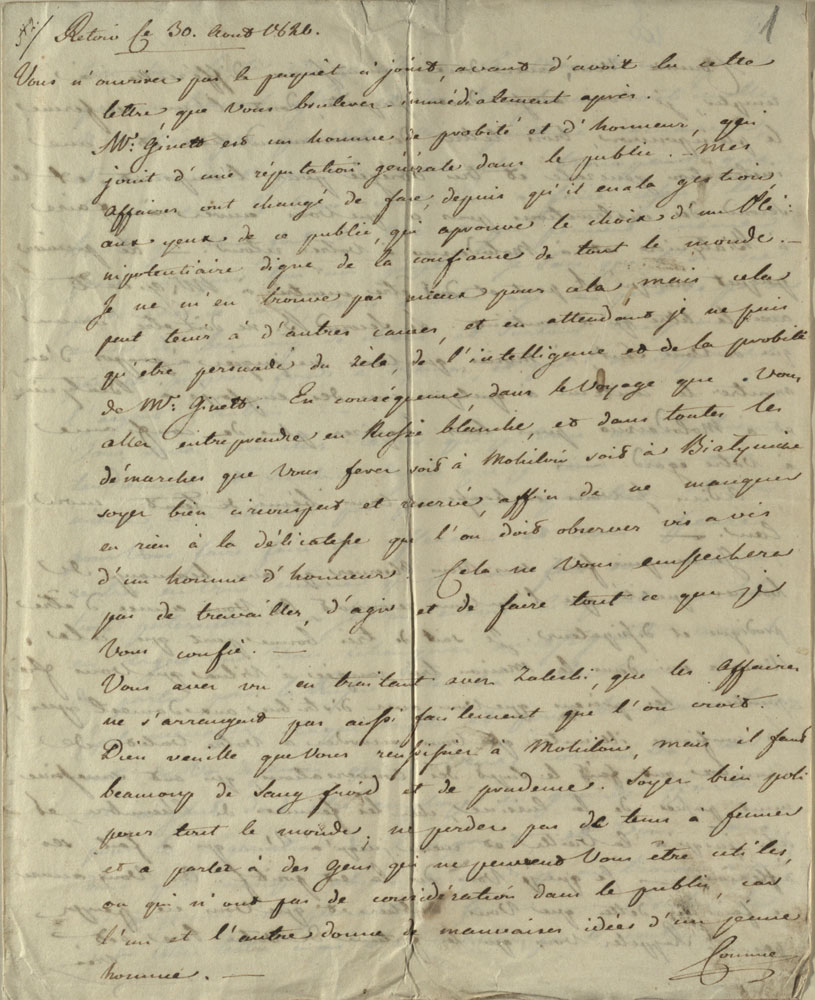 1
Retow Ce 30. Aout 1826.
Vous n'ouvrirez pas le paquet ci joint, avant d'avoir lu cette
lettre que Vous bruleres immédiatement après.
Mr. Ginett est un homme de probité et d'honneur, qui
jouit d'une réputation générale dans le public. - Mes
affaires ont changé de face, depuis qu'il en a la gestion
aux yeux de ce public, qui aprouve le choix d'un Plé:
nipotentiaire digne de la confiance de tout le monde. -
Je ne m'en trouve pas mieux pour cela, mais cela
peut tenir à d'autres causes, et en attendant je ne puis
qu'être persuadé du zèle, de l'intelligence et de la probité
de Mr. Ginett. En conséquence, dans le Voyage que Vous
allez entreprendre en Russie blanche, et dans toutes les
démarches que Vous ferez soit à Mohilow soit à Bialynicze
soyez bien circonspect et réservé, affin de ne manquer
en rien à la délicatesse que l'on doit observer vis a vis
d'un homme d'honneur. Cela ne Vous empechera
pas de travailler, d'agir et de faire tout ce que je
Vous confie. -
Vous avez vu en traitant avec Zaleski, que les affaires
ne s'arrangent pas aussi facilement que l'on croit.
Dieu veuille que Vous reussissiez à Mohilow, mais il faut
beaucoup de sang froid et de prudence. Soyez bien poli
pour tout le monde, ne perdez pas de tems à
et a parler à des gens qui ne peuvent Vous etre utiles,
ou qui n'ont pas de considération dans le public, car
l'un et l'autre donne de mauvaises idées d'un jeune
homme. -
Comme